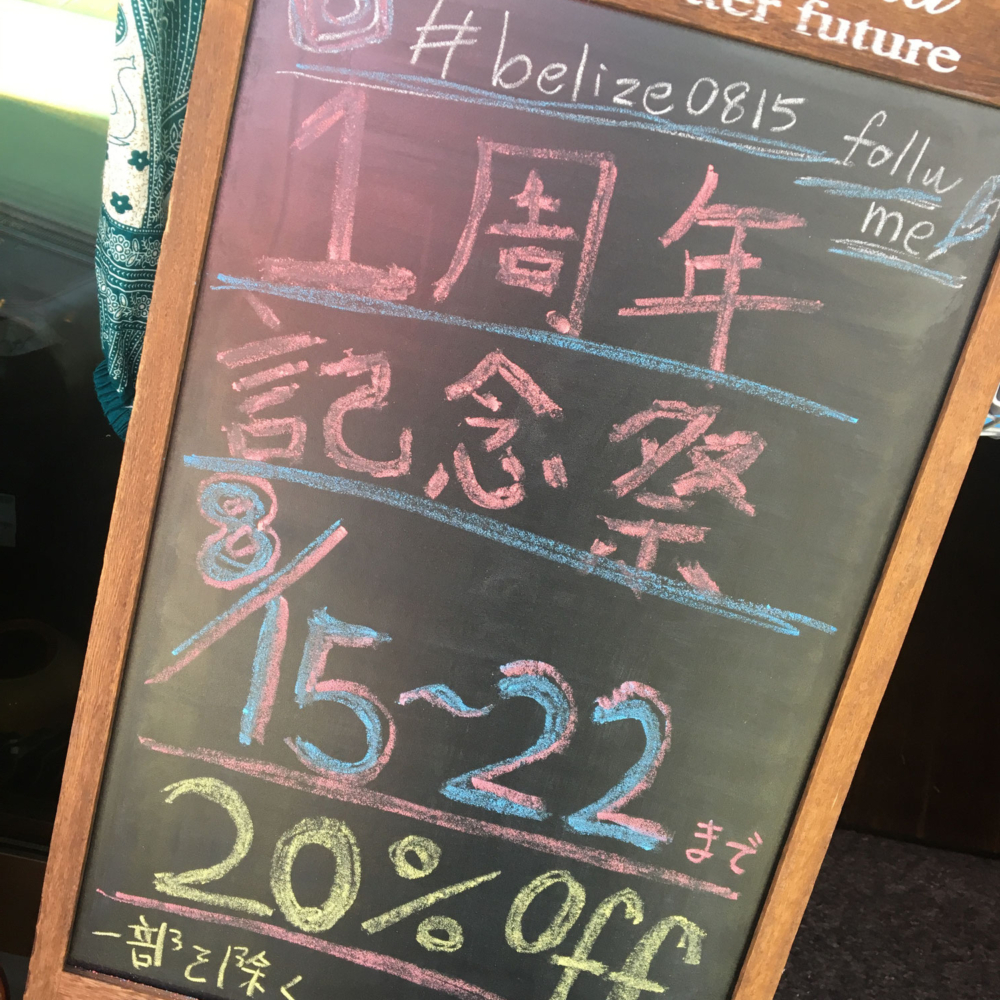 future
#belize0815
follw
me
1周年
記念祭
8/15~22まで
20%Off
一部を除く